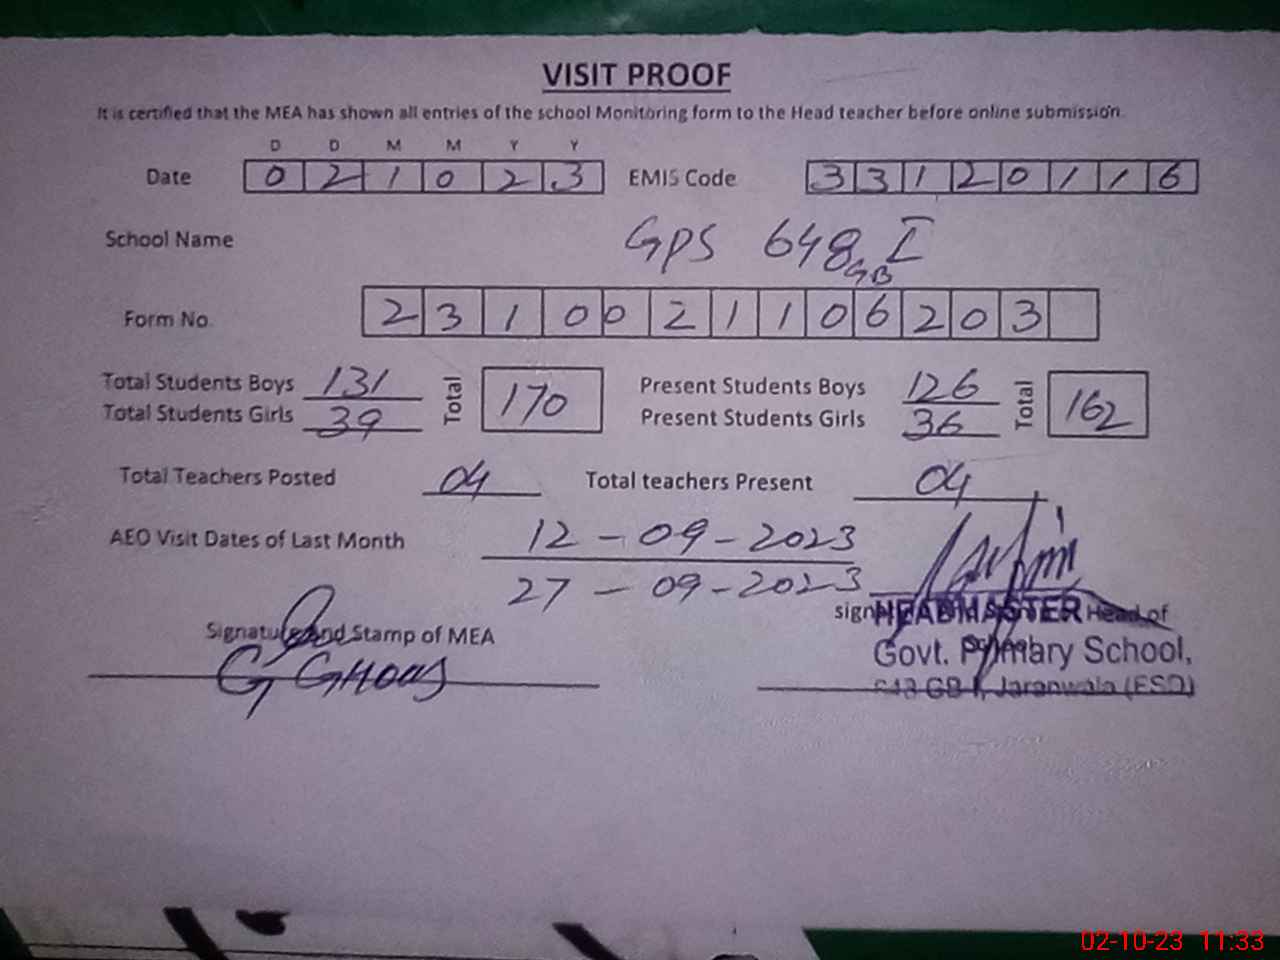 VISIT PROOF
It is certified that the MEA has shown all entries of the school Monitoring form to the Head teacher before online submission.
D D M M Y Y
Date 0 2 1 0 2 3 EMIS Code 3 3 1 2 0 1 1 6
School Name GPS 648 GB I
Form No. 2 3 1 0 0 2 1 1 0 6 2 0 3
Total Students Boys 131 Total 170 Present Students Boys 126 Total 162
Total Students Girls 39 Present Students Girls 36
Total Teachers Posted 04 Total teachers Present 04
AEO Visit Dates of Last Month 12 - 09 - 2023
27 - 09 - 2023
HEADMASTER Head of
Signature and Stamp of MEA
Govt. Primary School,
G GHOUS
648 GB I, Jaranwala (FSD)
02-10-23 11:33